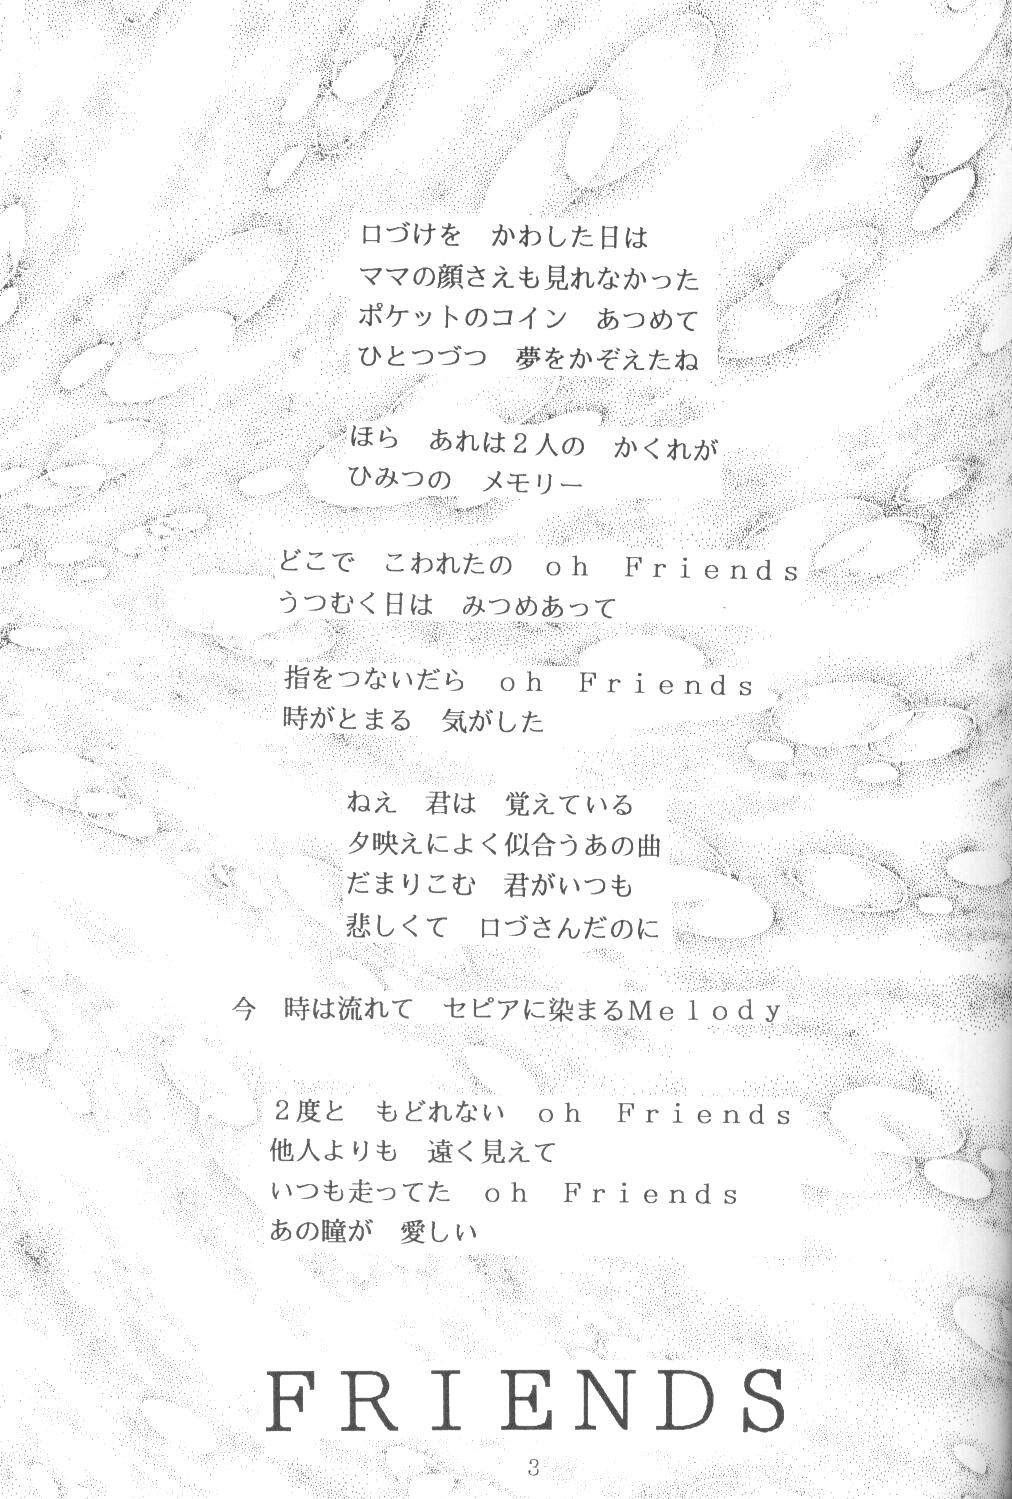 口づけを　かわした日は
ママの顔さえも見れなかった
ポケットのコイン　あつめて
ひとつづつ　夢をかぞえたね
ほら　あれは２人の　かくれが
ひみつの　メモリー
どこで　こわれたの　ｏｈ　Ｆｒｉｅｎｄｓ
うつむく日は　みつめあって
指をつないだら　ｏｈ　Ｆｒｉｅｎｄｓ
時がとまる　気がした
ねえ　君は　覚えている
夕映えによく似合うあの曲
だまりこむ　君がいつも
悲しくて　口づさんだのに
今　時は流れて　セピアに染まるＭｅｌｏｄｙ
２度と　もどれない　ｏｈ　Ｆｒｉｅｎｄｓ
他人よりも　遠く見えて
いつも走ってた　ｏｈ　Ｆｒｉｅｎｄｓ
あの瞳が　愛しい
ＦＲＩＥＮＤＳ
3